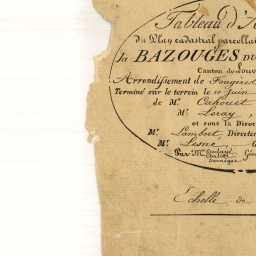 Tableau d'A
du Plan cadastral parcellai
la BAZOUGES DU
Canton de Louv
Arrondissement de Fougères
Terminé sur le terrain le 10 Juin
de Mr. Cahouet
Mr. Leray,
et sous la Direc
Mr. Lambert, Directeu
Mr. Lesné,
Par Mr.
Échelle de